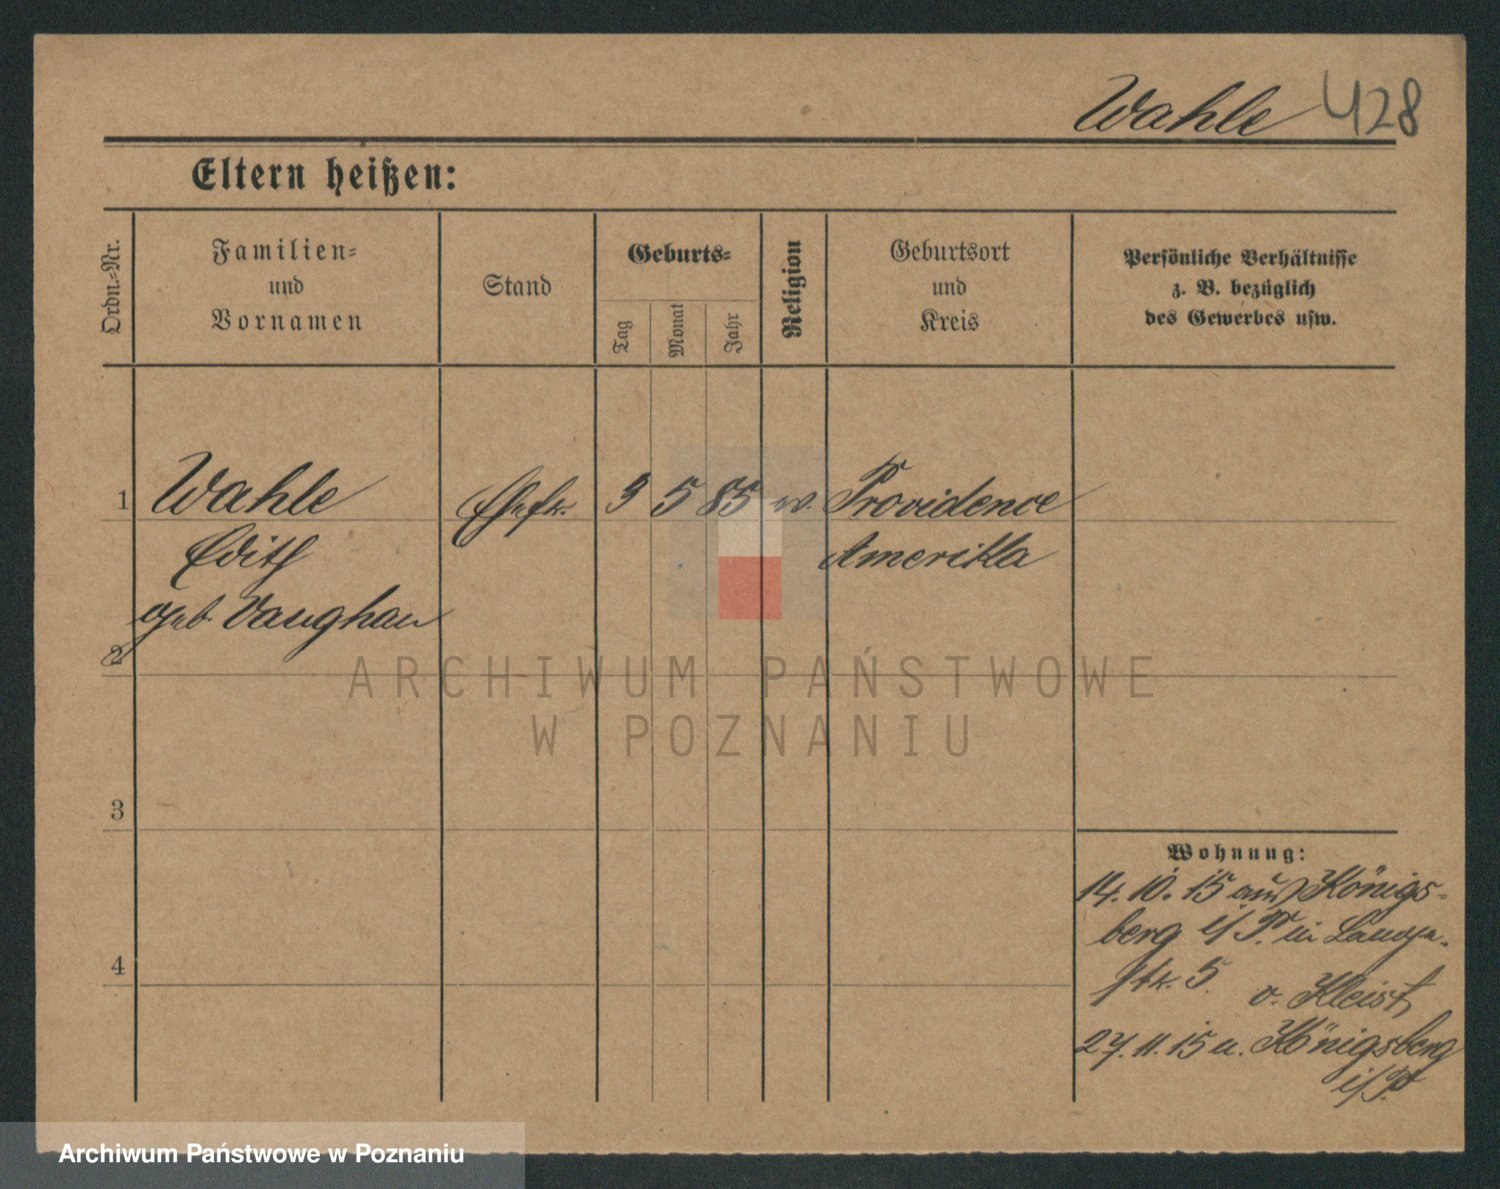 Wahle 428
Eltern heißen:
Ordn.-Nr.
Familien-
und
Vornamen
Stand
Geburts-
Tag
Monat
Jahr
Religion
Geburtsort
und
Kreis
Persönliche Verhältnisse
z. B. bezüglich
des Gewerbes usw.
1 Wahle Ehefr. 3 5 85 Providence
Edith Amerika
geb. Vaughan
2
ARCHIWUM PAŃSTWOWE
W POZNANIU
3
Wohnung:
14. 10. 15 aus Königs-
berg i/P. in
4
str. 5. v. Kleist,
27. 11. 15 n. Königsberg
i/P.
Archiwum Państwowe w Poznaniu